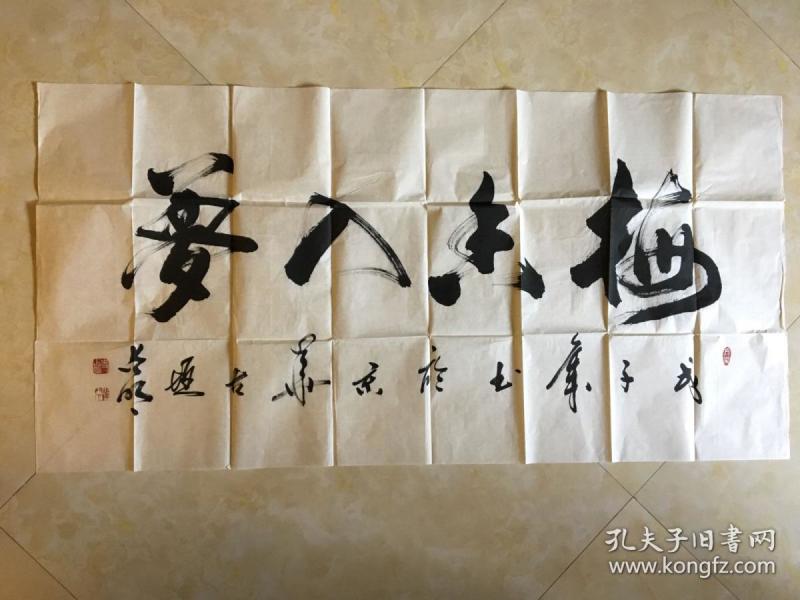 梅香入夢
戊子年書於京華古
孔夫子旧书网
www.kongfz.com